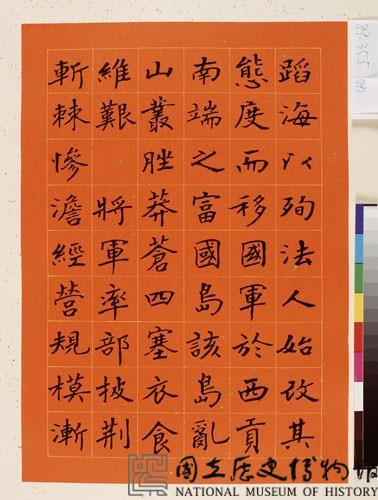 蹈海以殉法人始改其
態度而移國軍於西貢
南端之富國島該島亂
山叢脞莽蒼四塞衣食
維艱 將軍率部披荊
斬棘慘澹經營規模漸
國立歷史博物館
NATIONAL MUSEUM OF HISTORY